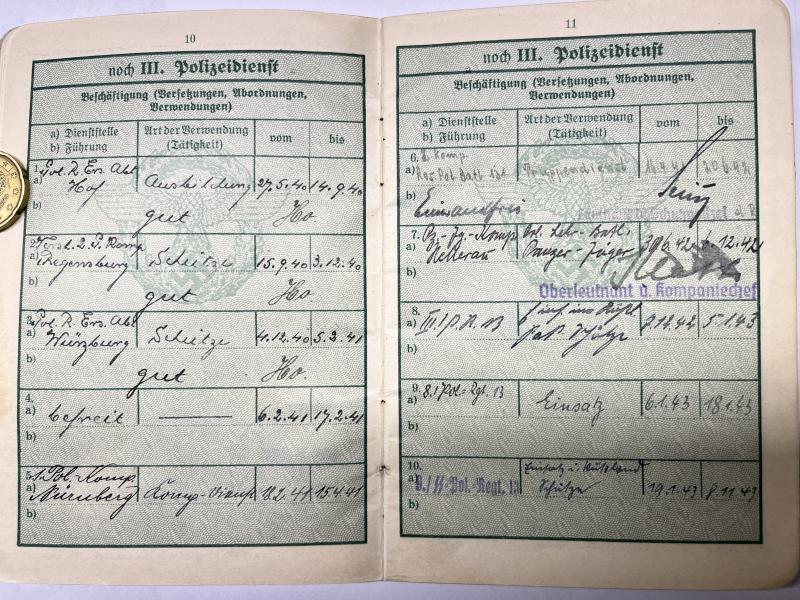 10
noch III. Polizeidienst
Beschäftigung (Versetzungen, Abordnungen,
Verwendungen)
a) Dienststelle
b) Führung
Art der Verwendung
(Tätigkeit)
vom
bis
1.
a)
Pol. R. Ers. Abt
Hof
Ausbildung
27.5.40
14.9.40
b)
gut
Ho
2.
a)
Regensburg
Schütze
15.9.40
3.12.40
b)
gut
Ho.
3.
a)
Pol. R. Ers. Abt
Würzburg
Schütze
4.12.40
5.2.41
b)
gut
Ho.
4.
a)
befreit
6.2.41
17.2.41
b)
5.
a)
Pol.-Komp.
Nürnberg
Komp.-Dienst
18.2.41
15.4.41
b)
11
noch III. Polizeidienst
Beschäftigung (Versetzungen, Abordnungen,
Verwendungen)
a) Dienststelle
b) Führung
Art der Verwendung
(Tätigkeit)
vom
bis
6.
a)
Komp.
Res Pol Batl.
Truppendienst
16.4.41
20.6.42
b)
Einwandfrei
7.
a)
Pz.-Jg.-Komp.
Hellerau
Pol. Lehr-Batl.
Panzer-Jäger
12.42
b)
Oberleutnant u. Kompaniechef
8.
a)
III./P.R. 13
5.1.43
b)
9.
a)
8./Pol.-Rgt. 13
Einsatz
6.1.43
18.1.43
b)
10.
a)
Pol.-Regt. 13
Einsatz i. Rußland
Schütze
19.1.43
8.11.43
b)